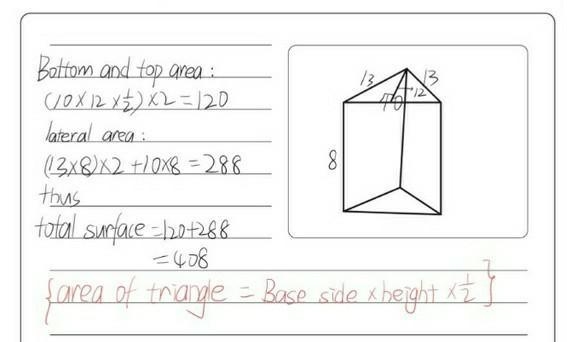 Bottom and top area :
(10 × 12 × 1/2) × 2 = 120
lateral area :
(13×8)×2 + 10×8 = 288
thus
total surface = 120+288
= 408
{area of triangle = Base side × height × 1/2}
13
13
12
10
8